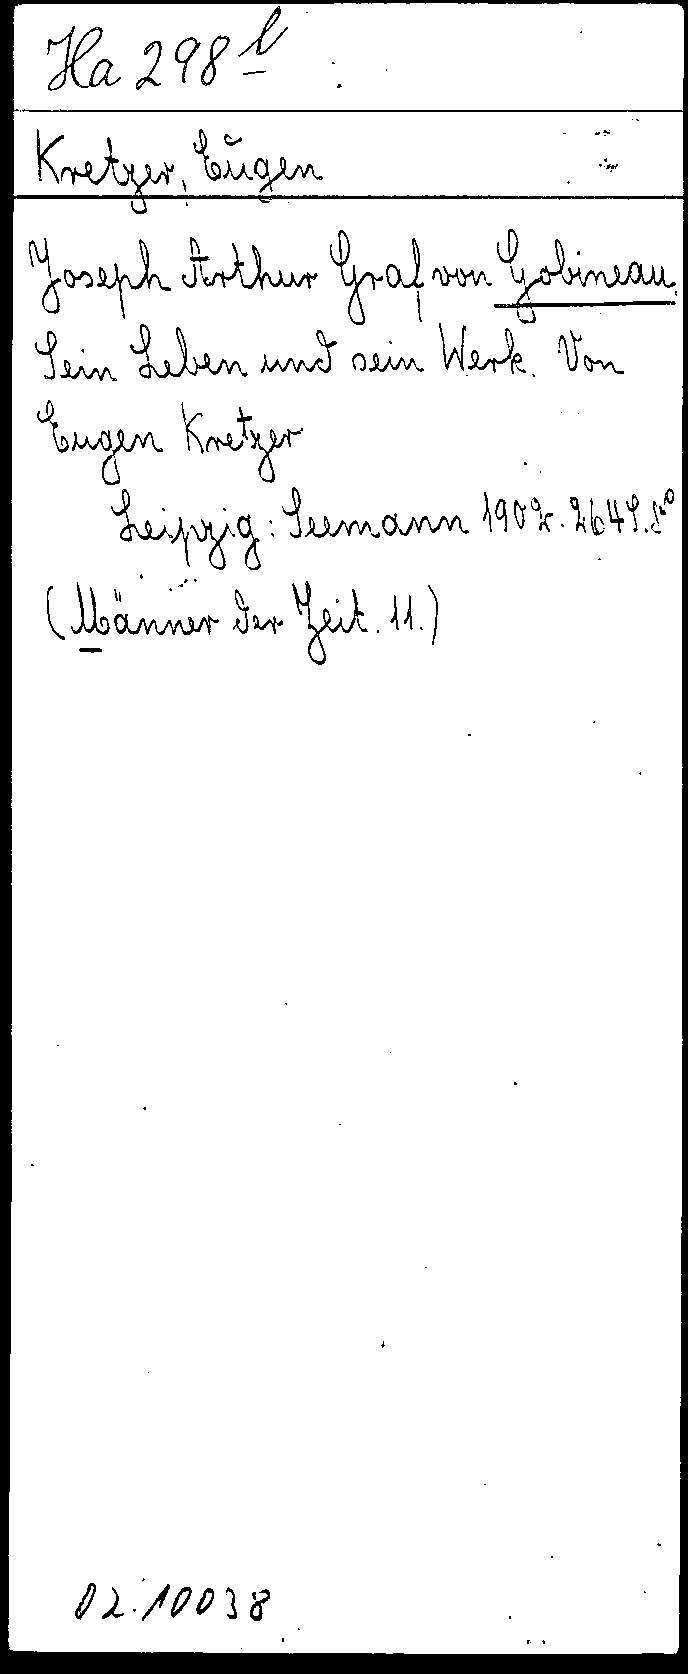 Ha 298 l
Kretzer, Eugen
Joseph Arthur Graf von Gobineau.
Sein Leben und sein Werk. Von
Eugen Kretzer
Leipzig: Seemann 1902. 264 S. 8°
(Männer der Zeit. 11.)
02.10038